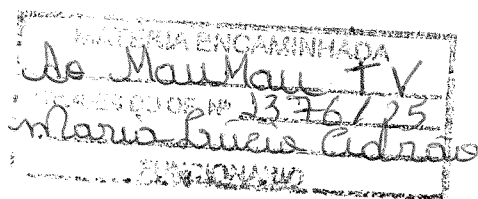 MATÉRIA ENCAMINHADA
Ao MauMau TV
Nº 1376/25
Maria Lucia Cidrão
FUNCIONÁRIO